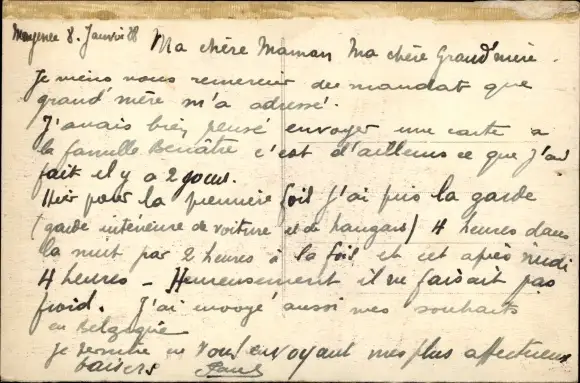 Mayence 8. Janvier 28 Ma chère Maman Ma chère Grand'mère.
Je viens vous remercier du mandat que
grand'mère m'a adressé.
J'avais bien pensé envoyer une carte a
la famille c'est d'ailleurs ce que j'ai
fait il y a 2 jours.
Hier pour la première fois j'ai pris la garde
(garde intérieure de voiture et de hangars) 4 heures dans
la nuit par 2 heures à la fois et cet après midi
4 heures - Heureusement il ne faisait pas
froid. J'ai envoyé aussi mes souhaits
en Belgique
Je termine en vous envoyant mes plus affectueux
baisers